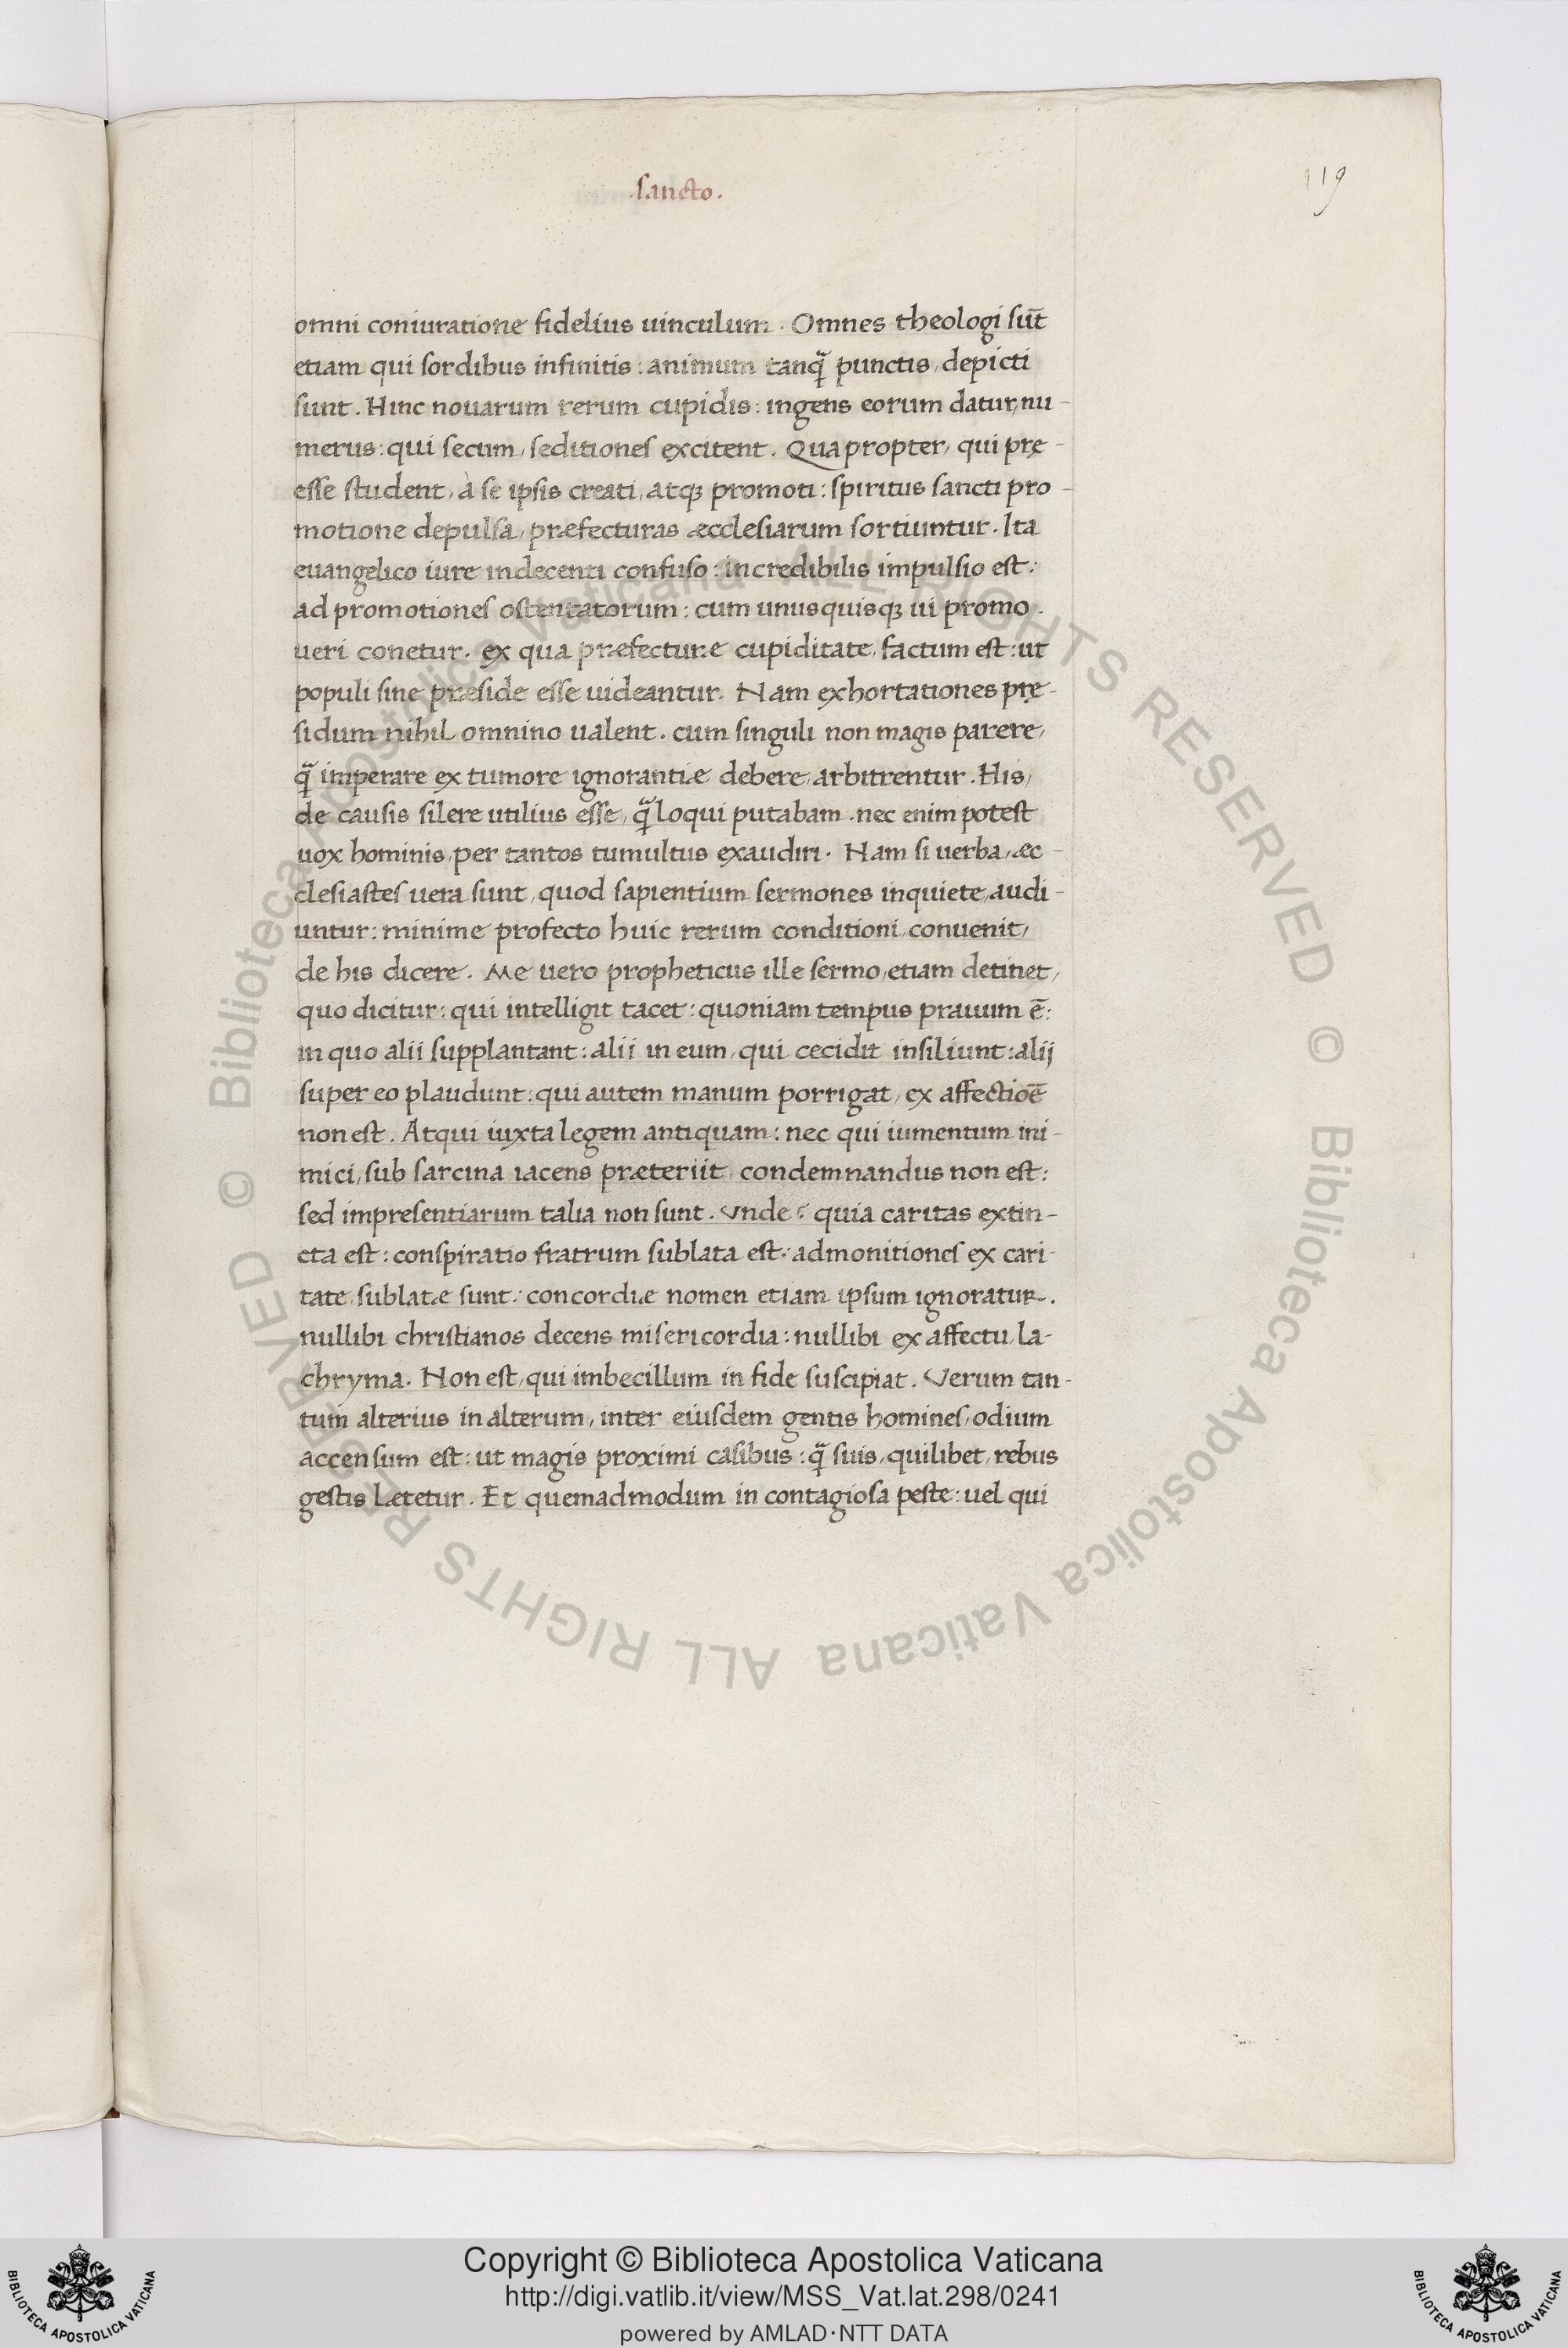 .sancto.
119
omni coniuratione fidelius uinculum. Omnes theologi sūt
etiam qui sordibus infinitis: animum tanq̃ punctis, depicti
sunt. Hinc nouarum rerum cupidis: ingens eorum datur, nu-
merus: qui secum, seditiones excitent. Quapropter, qui prę-
esse student, à se ipsis creati, atq; promoti: spiritus sancti pro-
motione depulsa, præfecturas æcclesiarum sortiuntur. Ita
euangelico iure indecenti confuso: incredibilis impulsio est:
ad promotiones ostentatorum: cum unusquisq; ui promo-
ueri conetur. ex qua præfecturæ cupiditate, factum est: ut
populi sine præside esse uideantur. Nam exhortationes prę-
sidum nihil omnino ualent. cum singuli non magis parere,
q̃ imperare ex tumore ignorantiæ debere, arbitrentur. His,
de causis silere utilius esse, q̃ loqui putabam. nec enim potest
uox hominis, per tantos tumultus exaudiri. Nam si uerba, æc-
clesiastes uera sunt, quod sapientium sermones inquiete, audi-
untur: minime profecto huic rerum conditioni, conuenit,
de his dicere. Me uero propheticus ille sermo, etiam detinet,
quo dicitur: qui intelligit tacet: quoniam tempus prauum ē:
in quo alii supplantant: alii in eum, qui cecidit insiliunt: alij
super eo plaudunt: qui autem manum porrigat, ex affectioē
non est. Atqui iuxta legem antiquam: nec qui iumentum ini-
mici, sub sarcina iacens præteriit, condemnandus non est:
sed impresentiarum talia non sunt. Vnde? quia caritas extin-
cta est: conspiratio fratrum sublata est: admonitiones ex cari-
tate, sublatæ sunt: concordiæ nomen etiam ipsum ignoratur.
nullibi christianos decens misericordia: nullibi ex affectu, la-
chryma. Non est, qui imbecillum in fide suscipiat. Verum tan-
tum alterius in alterum, inter eiusdem gentis homines, odium
accensum est: ut magis proximi casibus: q̃ suis, quilibet, rebus
gestis lætetur. Et quemadmodum in contagiosa peste: uel qui
© Biblioteca Apostolica Vaticana ALL RIGHTS RESERVED © Biblioteca Apostolica Vaticana ALL RIGHTS RESERVED
Copyright © Biblioteca Apostolica Vaticana
http://digi.vatlib.it/view/MSS_Vat.lat.298/0241
powered by AMLAD·NTT DATA
BIBLIOTECA APOSTOLICA VATICANA
BIBLIOTECA APOSTOLICA VATICANA